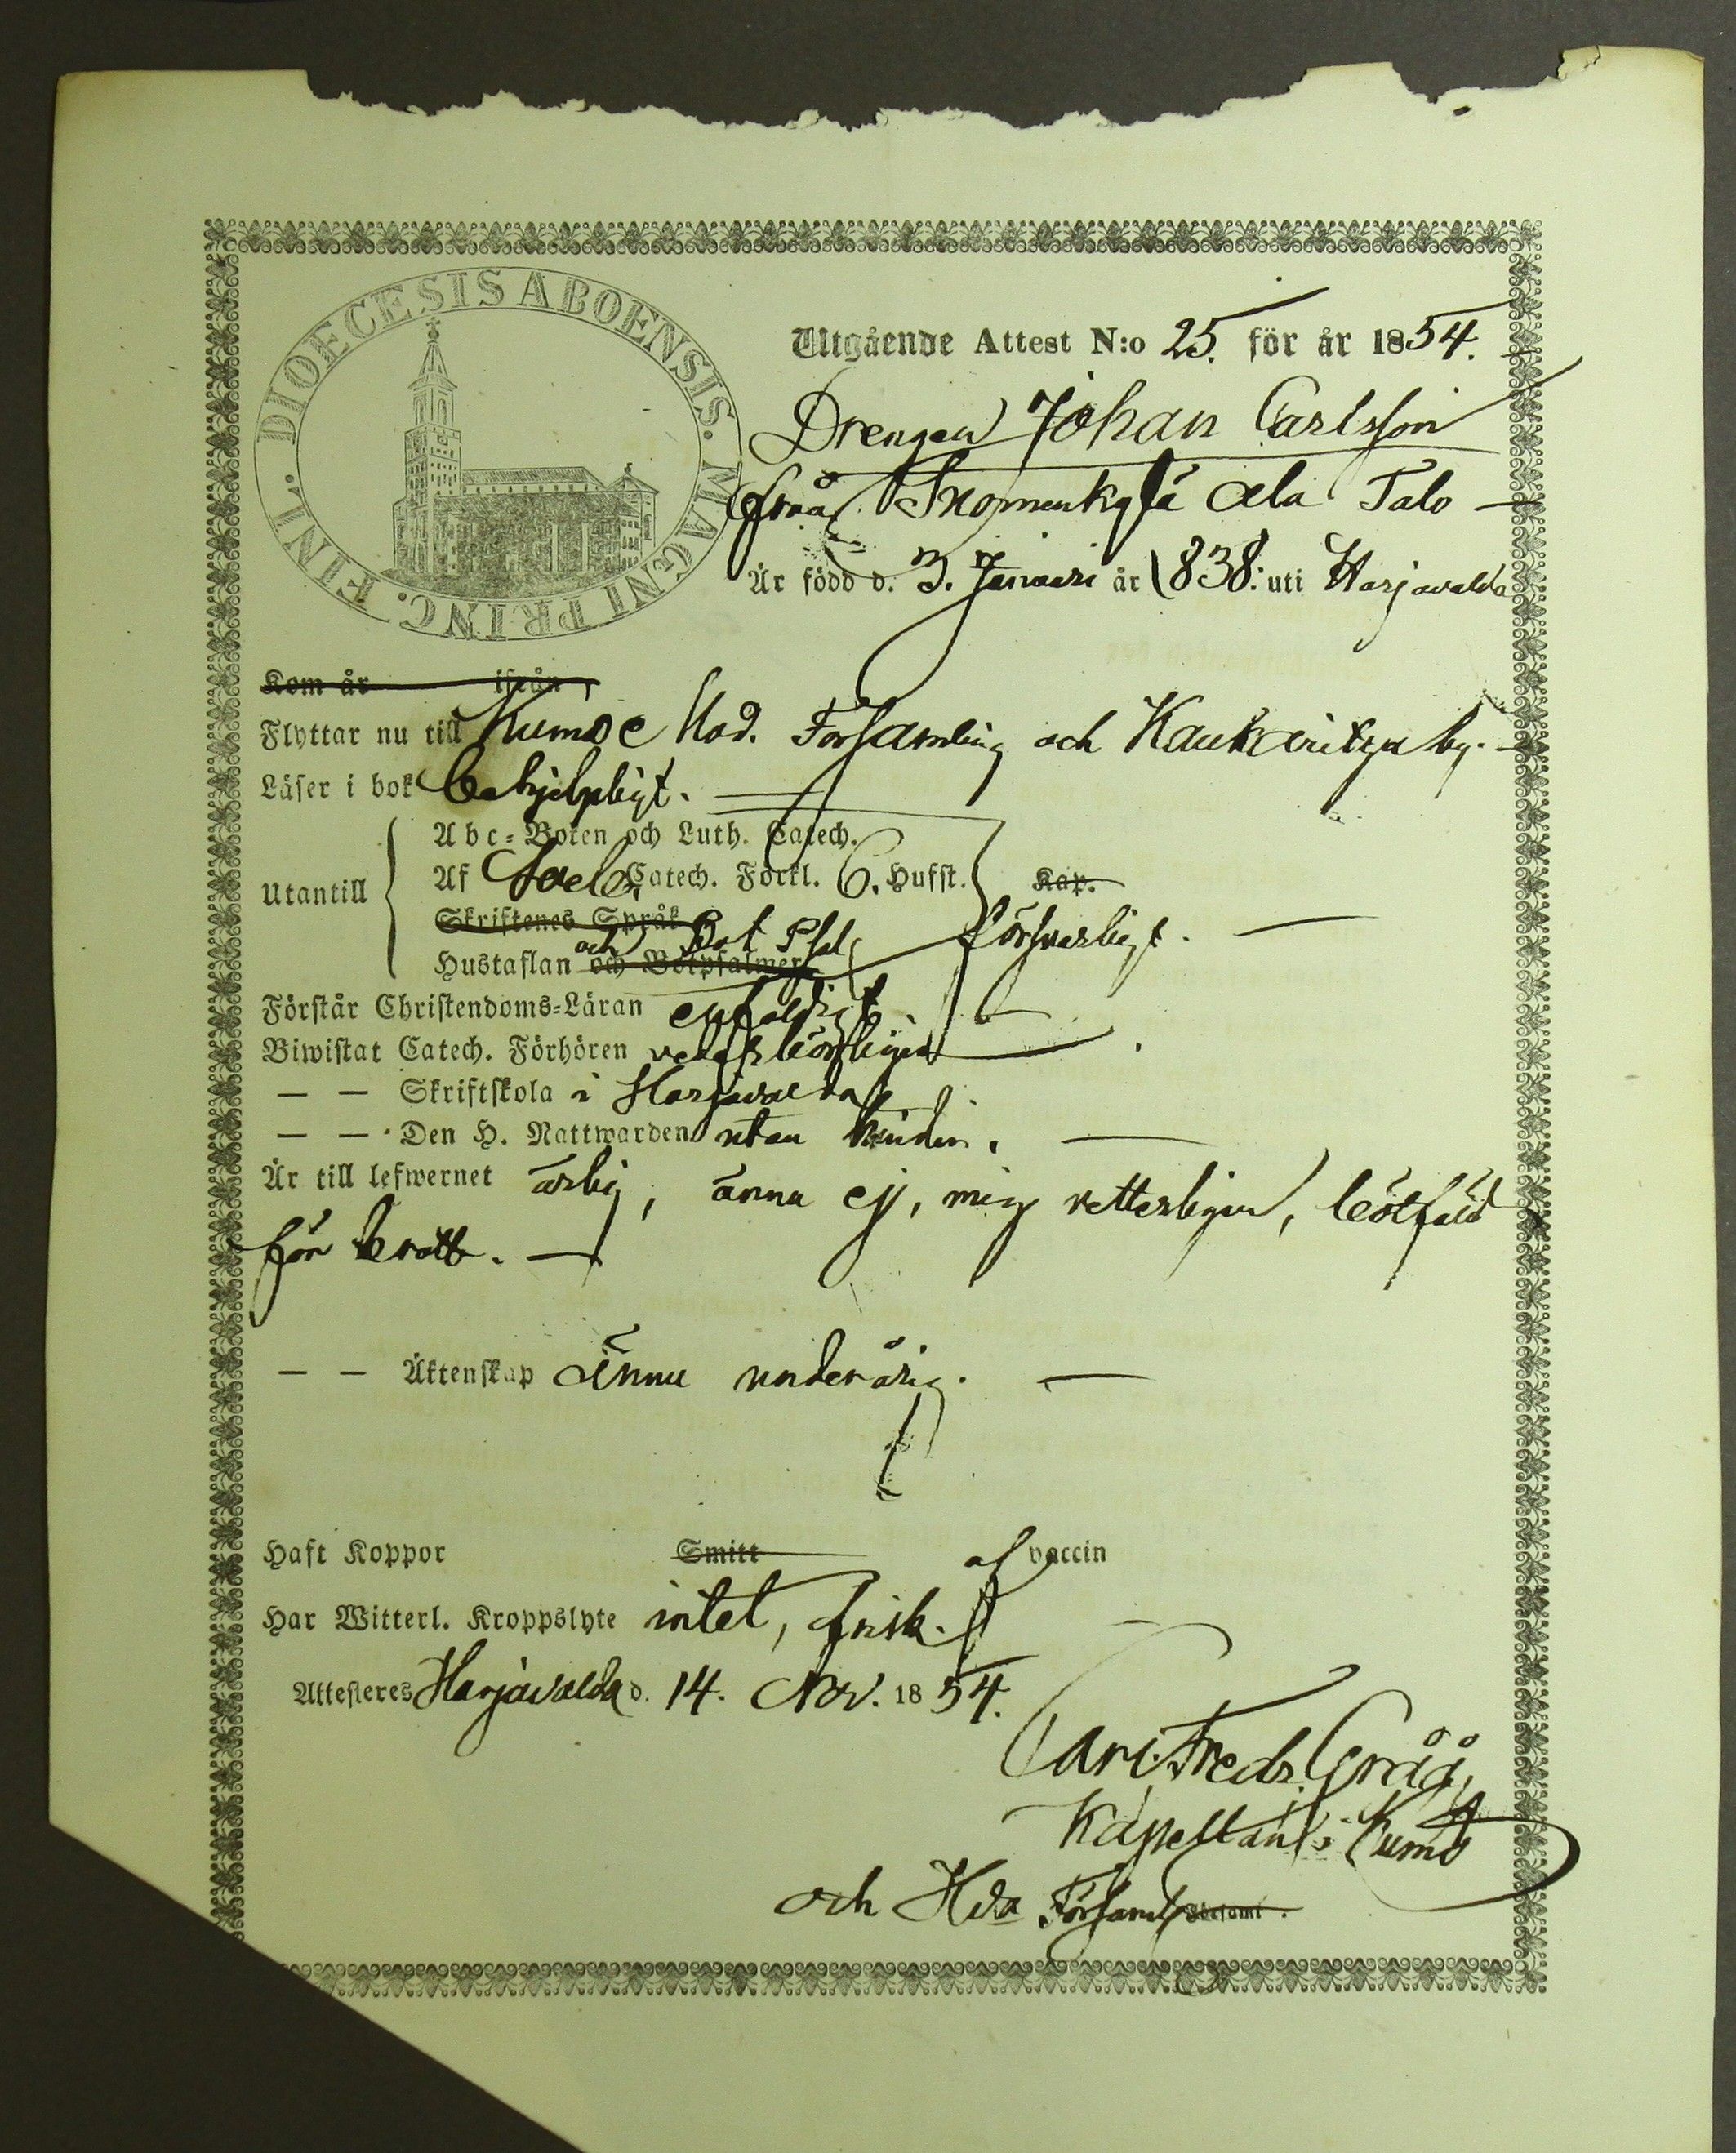 DIOECESIS ABOENSIS. MAGNI PRINC. FINL.
Utgående Attest N:o 25. för år 1854.
Drengen Johan Carlsson
från Suomenkylä Ala Talo
Är född d. 3. Januari år 1838. uti Harjavalda
Kom år ifrån
Flyttar nu till Kumo Mod. Församling och Kaukaritza by.
Läser i bok behjelpligt.
Abc-Boken och Luth. Catech.
Utantill Af Sveb. Catech. Förkl. 6. Hufst. Kap.
Skriftenes Språk försvarligt.
och Bot Psal
Hustaflan och Botpsalmer
Förstår Christendoms-Läran enfaldigt
Biwistat Catech. Förhören vederbörligen
— — Skriftskola i Harjavalda
— — Den H. Nattwarden utan hinder.
Är till lefwernet ärlig, ännu ej, mig vetterligen, bötfäld
för brott.
— — Äktenskap Ännu underårig.
Haft Koppor Smitt af vaccin
Har Witterl. Kroppslyte intet, frisk.
Attesteres Harjavalda d. 14. Nov. 1854.
Carl Fredr. Gråå,
Kapellan i Kumo
och Hda Församl. Församl.